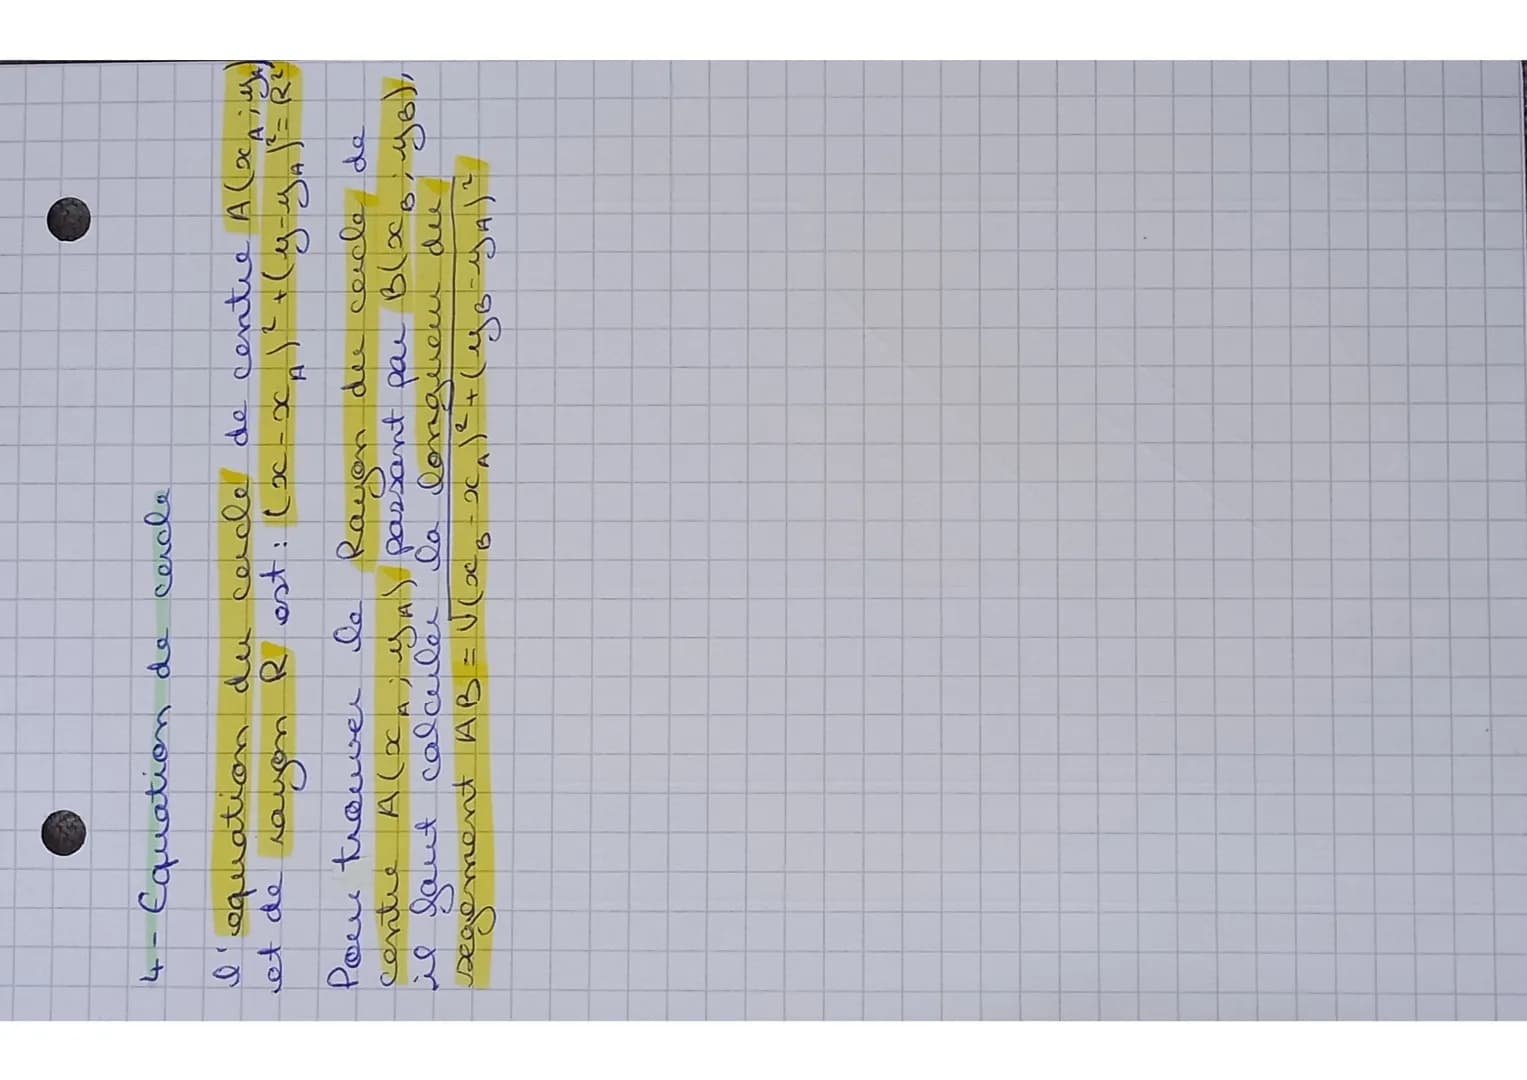 4 - Equation de cercle
l'equation du cercle de centre A(xA ; yA)
et de rayon R est : (x - xA)² + (y - yA)² = R²
Pour trouver le Rayon du cercle de
centre A(xA ; yA) passant par B(xB ; yB),
il faut calculer la longueur du
segement AB = √(xB - xA)² + (yB - yA)²